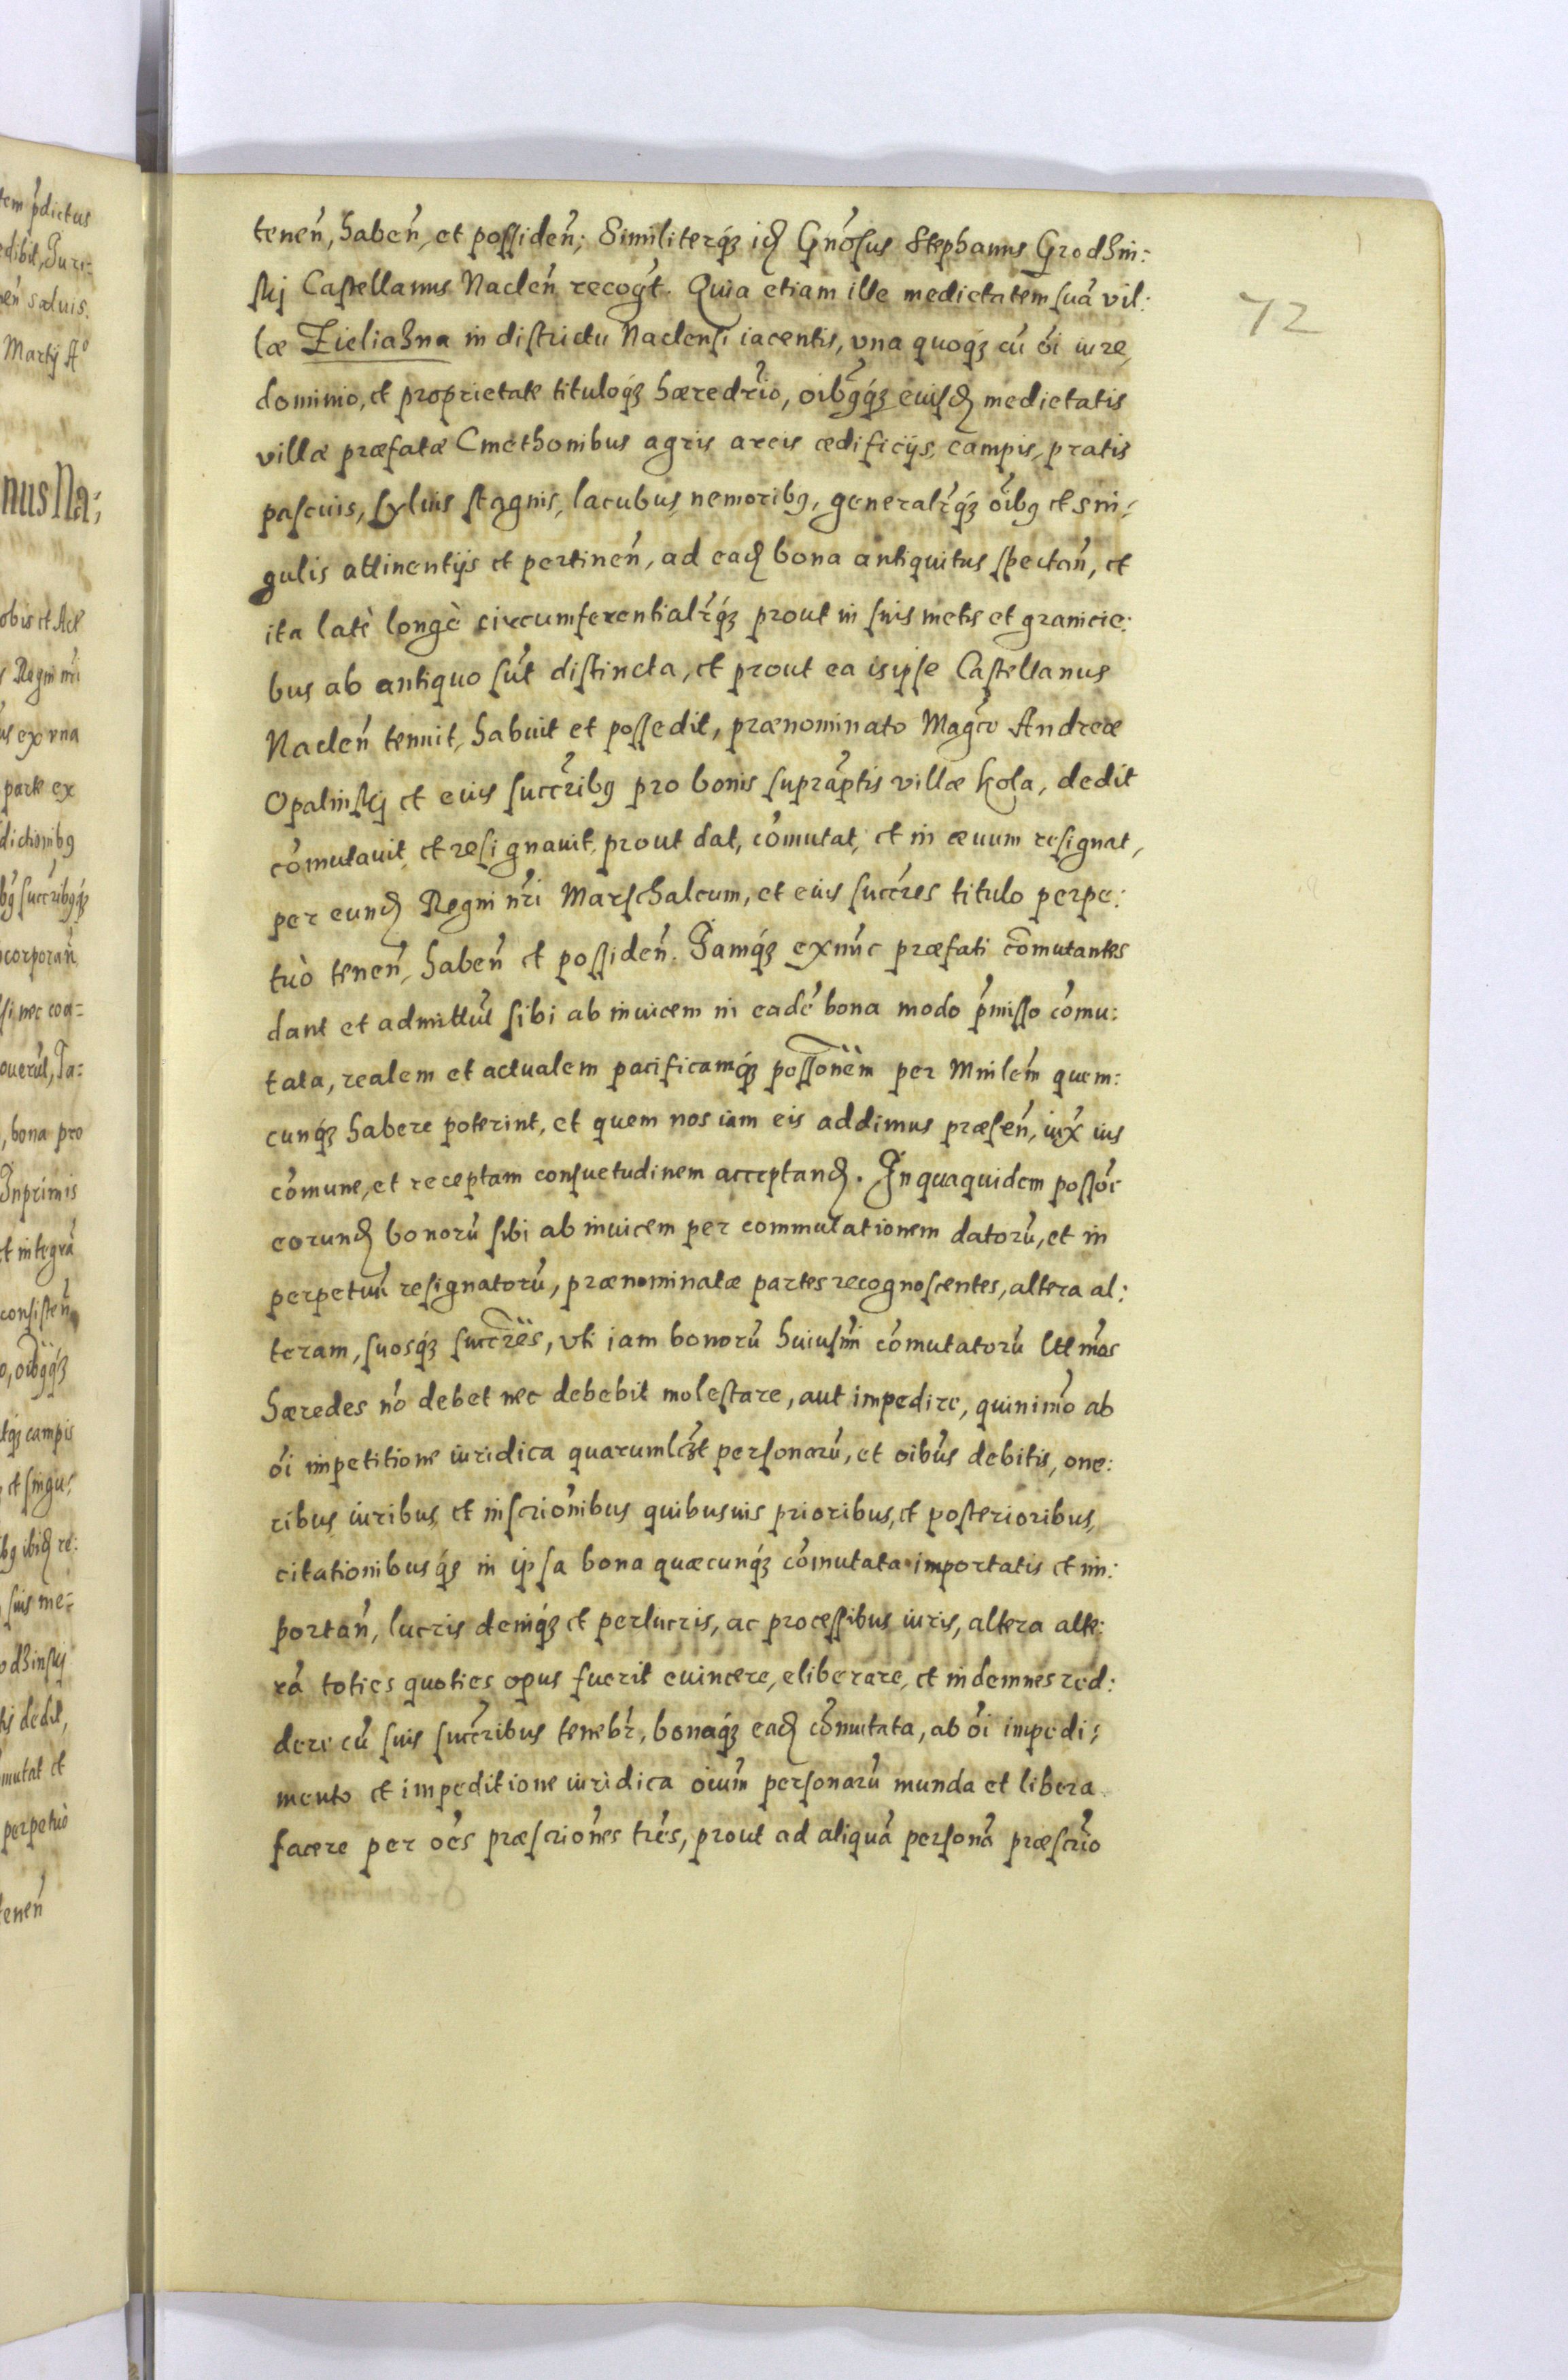 tenen̄, haben̄, et possiden̄; Similiterq́ꝫ idꝫ Gn̄osus Stephanus Grodzin:
skj Castellanus Naclen̄ recog̃t. Quia etiam ille medietatem suā vil:
læ Zieliazna in districtu Naclensi iacentis, vna quoq́ꝫ cū ōi iure,
dominio, et proprietate tituloq́ꝫ hæredr̃io, oib9q́ꝫ euisdꝫ medietatis
villæ præfatæ Cmethonibus agris areis ædificijs, campis, pratis
pascuis, syluis stagnis, lacubus, nemorib9, generalr̃q́ꝫ oīb9 et sin:
gulis attinentijs et pertinen̄, ad eadꝫ bona antiquitus spectan̄, et
ita latè longè circumferentialr̃q́ꝫ prout in suis metis et granicie:
bus ab antiquo sūt distincta, et prout ea is ipse Castellanus
Naclen̄ tenuit, habuit et possedit, prænominato Mag̃co Andreæ
Opalinskj et euis succr̃ib9 pro bonis suprap̃tis villæ Kola, dedit
com̄utauit, et resignauit, prout dat, com̄utat, et in æuum resignat,
per eundꝫ Regni nr̃i Marschalcum, et euis succr̃es titulo perpe:
tuò tenen̄, haben̄ et possiden̄. Jamq́ꝫ exnūc præfati com̄utantes
dant et admittūt sibi ab inuicem in eadē bona modo p̄misso com̄u:
tata, realem et actualem pacificamq́ꝫ possōnem per Minlem̄ quem:
cunq́ꝫ habere poterint, et quem nos iam eis addimus præsen̄, iux̄ ius
com̄une, et receptam consuetudinem acceptandꝫ. In quaquidem possōe
eorundꝫ bonorū sibi ab inuicem per commutationem datorū, et in
perpetuū resignatorū, prænominatæ partes recognoscentes, altera al:
teram, suosq́ꝫ succr̃es, vti iam bonorū huiusm̄i com̄utatorū lttm̄os
hæredes nō debet nec debebit molestare, aut impedire, quinimō ab
ōi impetitione iuridica quarumlꝫt personarū, et oībus debitis, one:
ribus iuribus, et inscriōnibus quibusuis prioribus, et posterioribus,
citationibusq́ꝫ in ipsa bona quæcunq́ꝫ com̄utata importatis et im:
portan̄, lucris deniq́ꝫ et perlucris, ac processibus iuris, altera alte:
rā toties quoties opus fuerit euincere, eliberare, et indemnes red:
dere cū suis succr̃ibus tenebr̃, bonaq́ꝫ eadꝫ com̄utata, ab ōi impedi:
mento et impeditione iuridica oiūm personarū munda et libera
facere per oēs præscriōnes tr̃es, prout ad aliquā personā præscr̃io
72